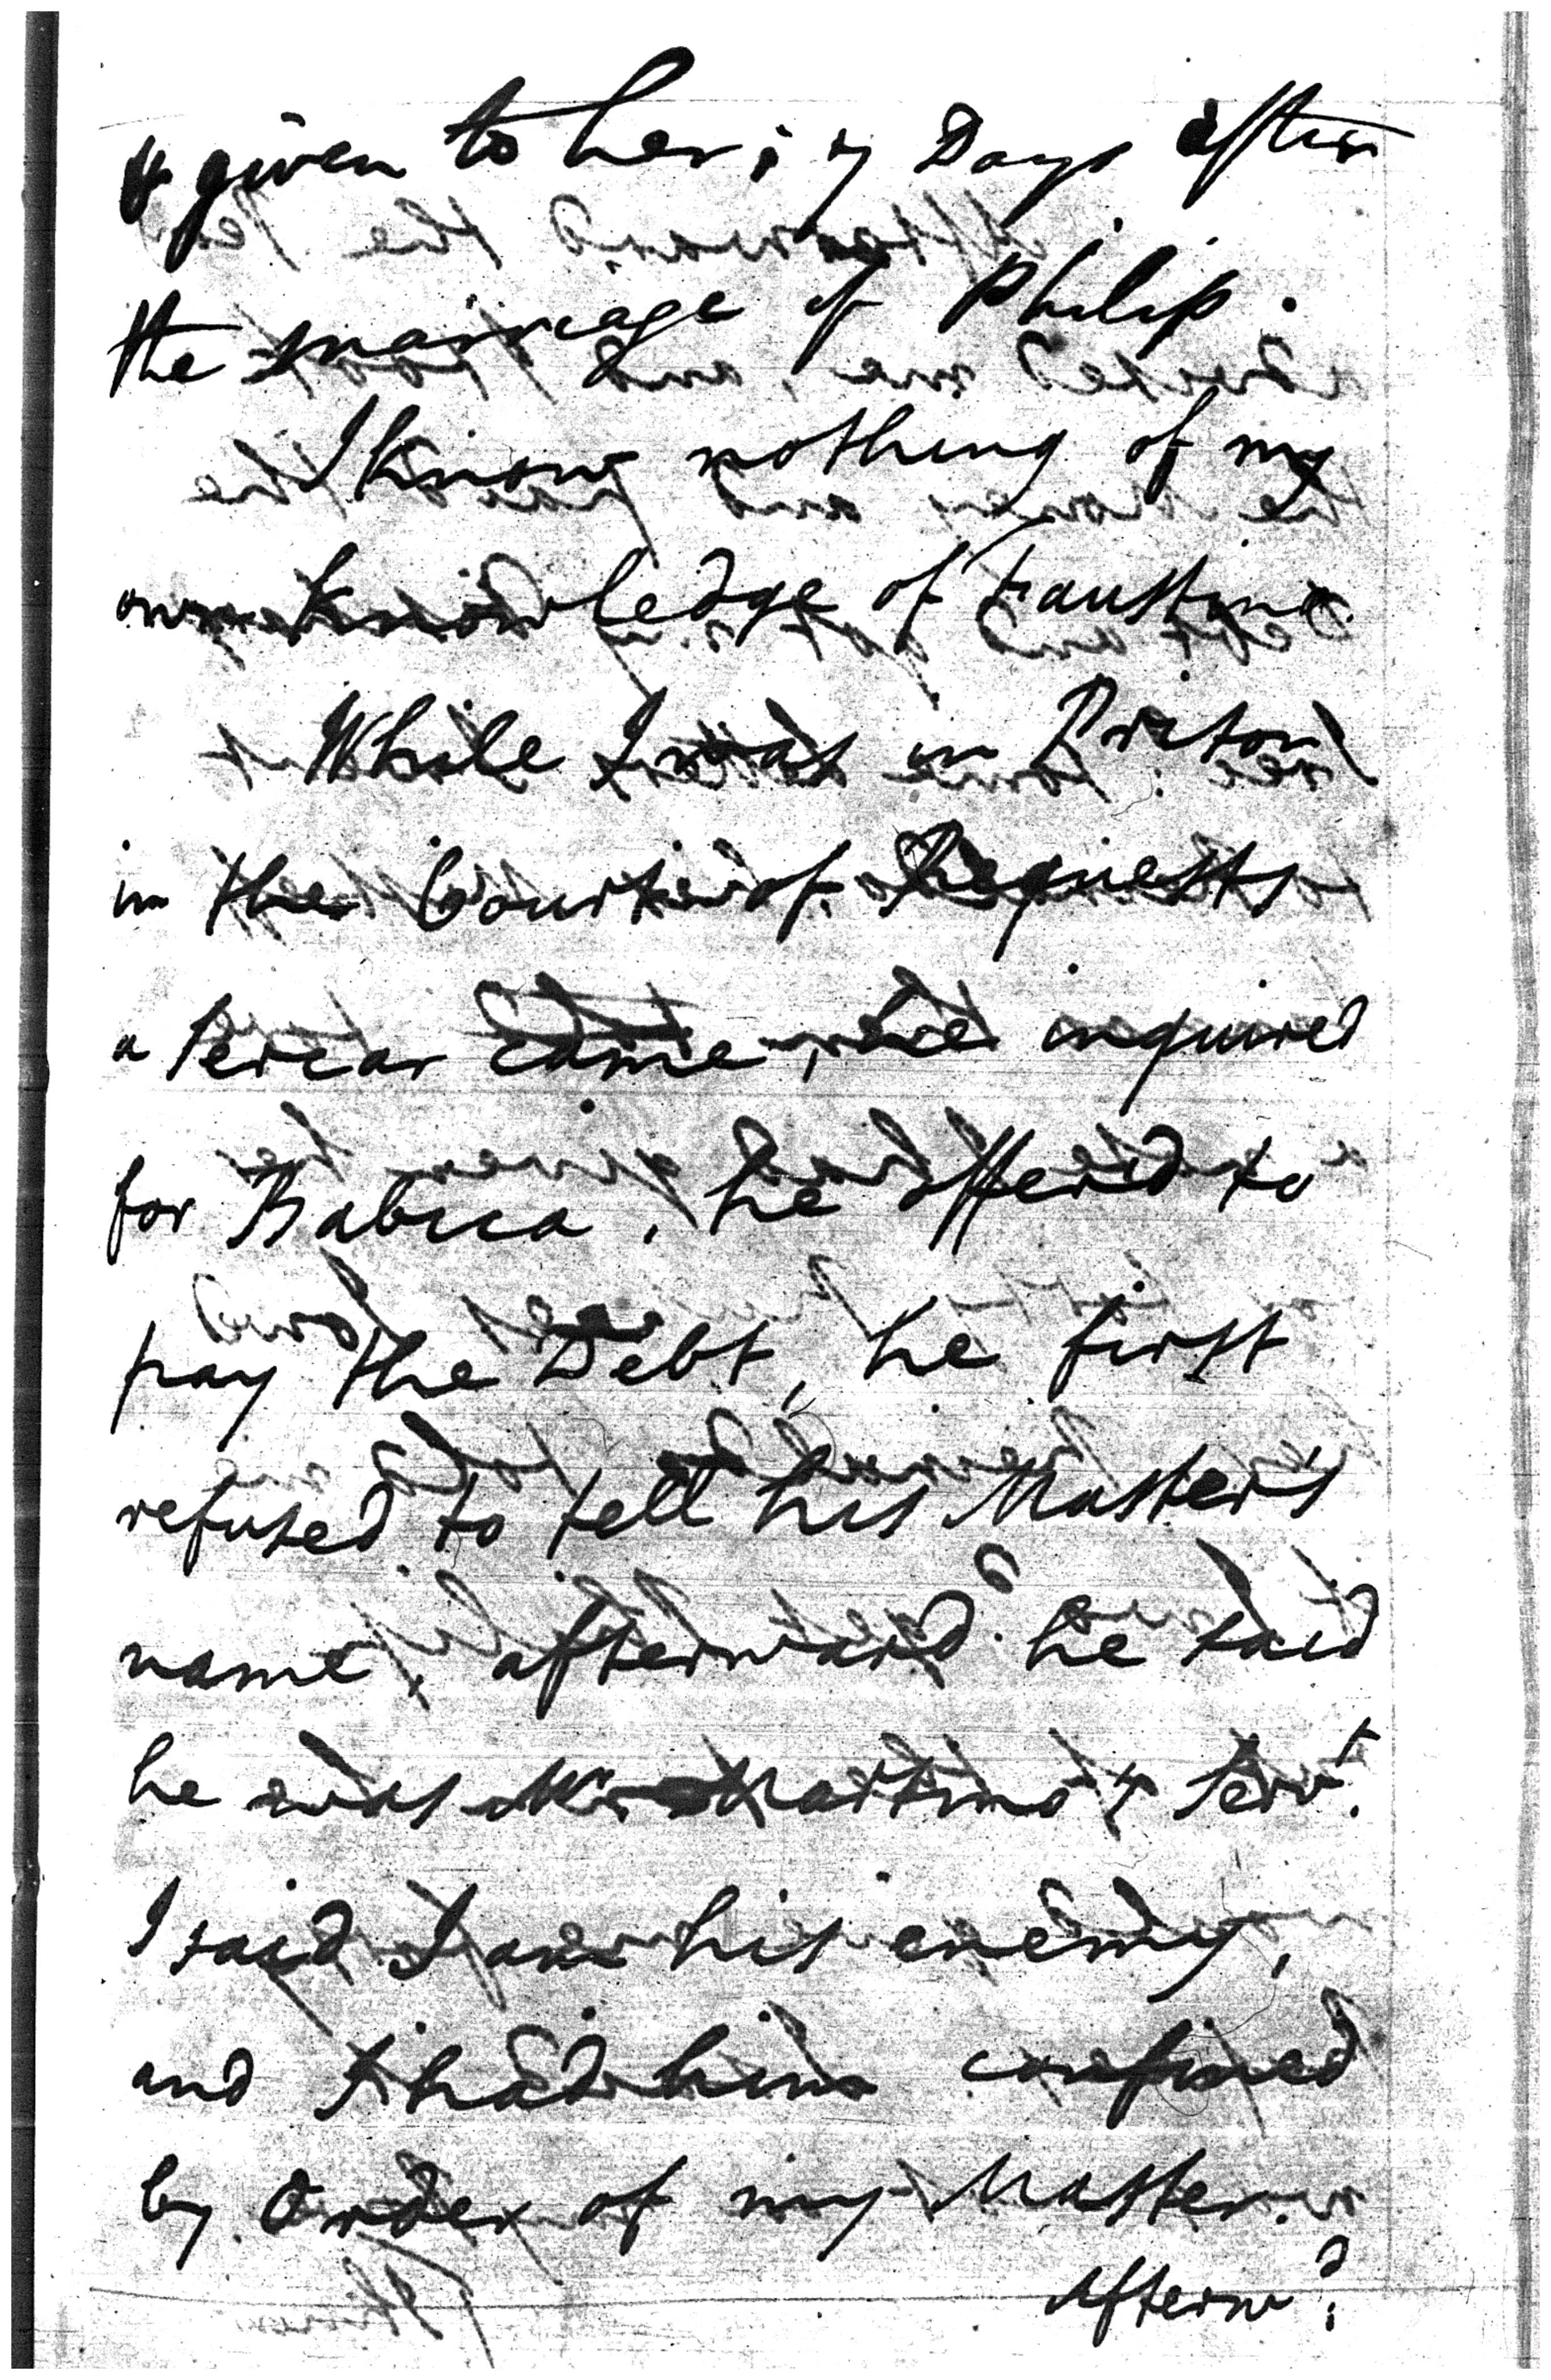 & given to her; 7 Days after
the marriage of Philip.
I know nothing of my
own knowledge of Faustina.
While I was in Prison
in the Court of Requests
a Sercar came, he inquired
for Babica, he offered to
pay the Debt, he first
refused to tell his Master's
name, afterward he said
he was Mr Martino's Servt.
I said I am his enemy,
and I had him confined
by Order of my Master.
afterwd: